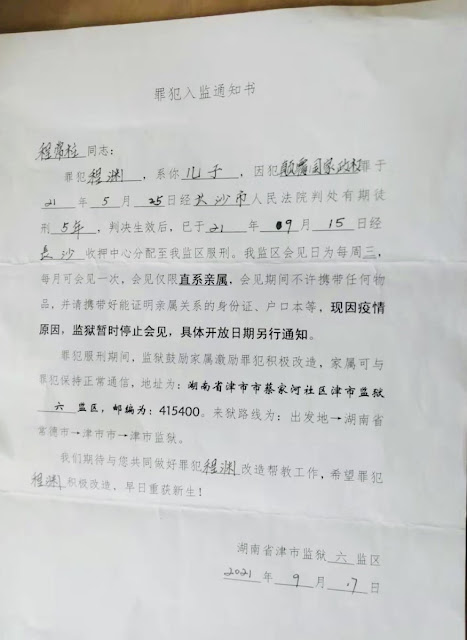 罪犯入监通知书
程 同志：
罪犯 程渊 ，系你 儿子 ，因犯 颠覆国家政权 罪于
21 年 5 月 25 日经 长沙市 人民法院判处有期徒
刑 5年 ，判决生效后，已于 21 年 09 月 15 日经
长沙 收押中心分配至我监区服刑。我监区会见日为每周三，
每月可会见一次，会见仅限直系亲属，会见期间不许携带任何物
品，并请携带好能证明亲属关系的身份证、户口本等，现因疫情
原因，监狱暂时停止会见，具体开放日期另行通知。
罪犯服刑期间，监狱鼓励家属激励罪犯积极改造，家属可与
罪犯保持正常通信，地址为：湖南省津市市蔡家河社区津市监狱
六 监区，邮编为：415400。来狱路线为：出发地→湖南省
常德市→津市市→津市监狱。
我们期待与您共同做好罪犯 程渊 改造帮教工作，希望罪犯
程渊 积极改造，早日重获新生！
湖南省津市监狱 六 监区
2021 年 9 月 17 日